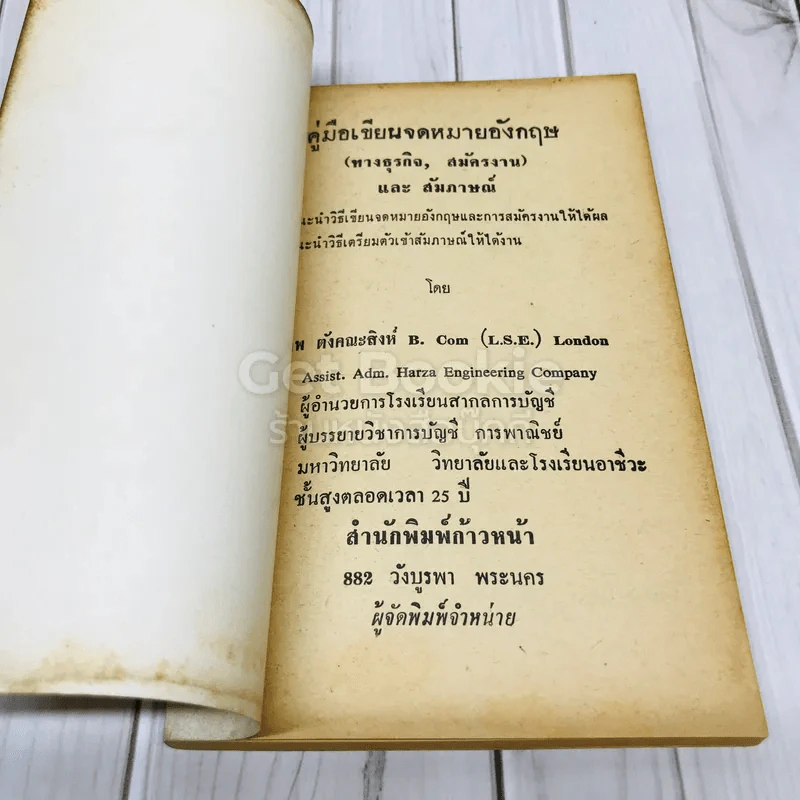 คู่มือเขียนจดหมายอังกฤษ
(ทางธุรกิจ, สมัครงาน)
และ สัมภาษณ์
นะนำวิธีเขียนจดหมายอังกฤษและการสมัครงานให้ได้ผล
นะนำวิธีเตรียมตัวเข้าสัมภาษณ์ให้ได้งาน
โดย
พ ตังคณะสิงห์ B. Com (L.S.E.) London
Assist. Adm. Harza Engineering Company
Get Bookie
ผู้อำนวยการโรงเรียนสากลการบัญชี
ผู้บรรยายวิชาการบัญชี การพาณิชย์
มหาวิทยาลัย วิทยาลัยและโรงเรียนอาชีวะ
ชั้นสูงตลอดเวลา 25 ปี
สำนักพิมพ์ก้าวหน้า
882 วังบูรพา พระนคร
ผู้จัดพิมพ์จำหน่าย